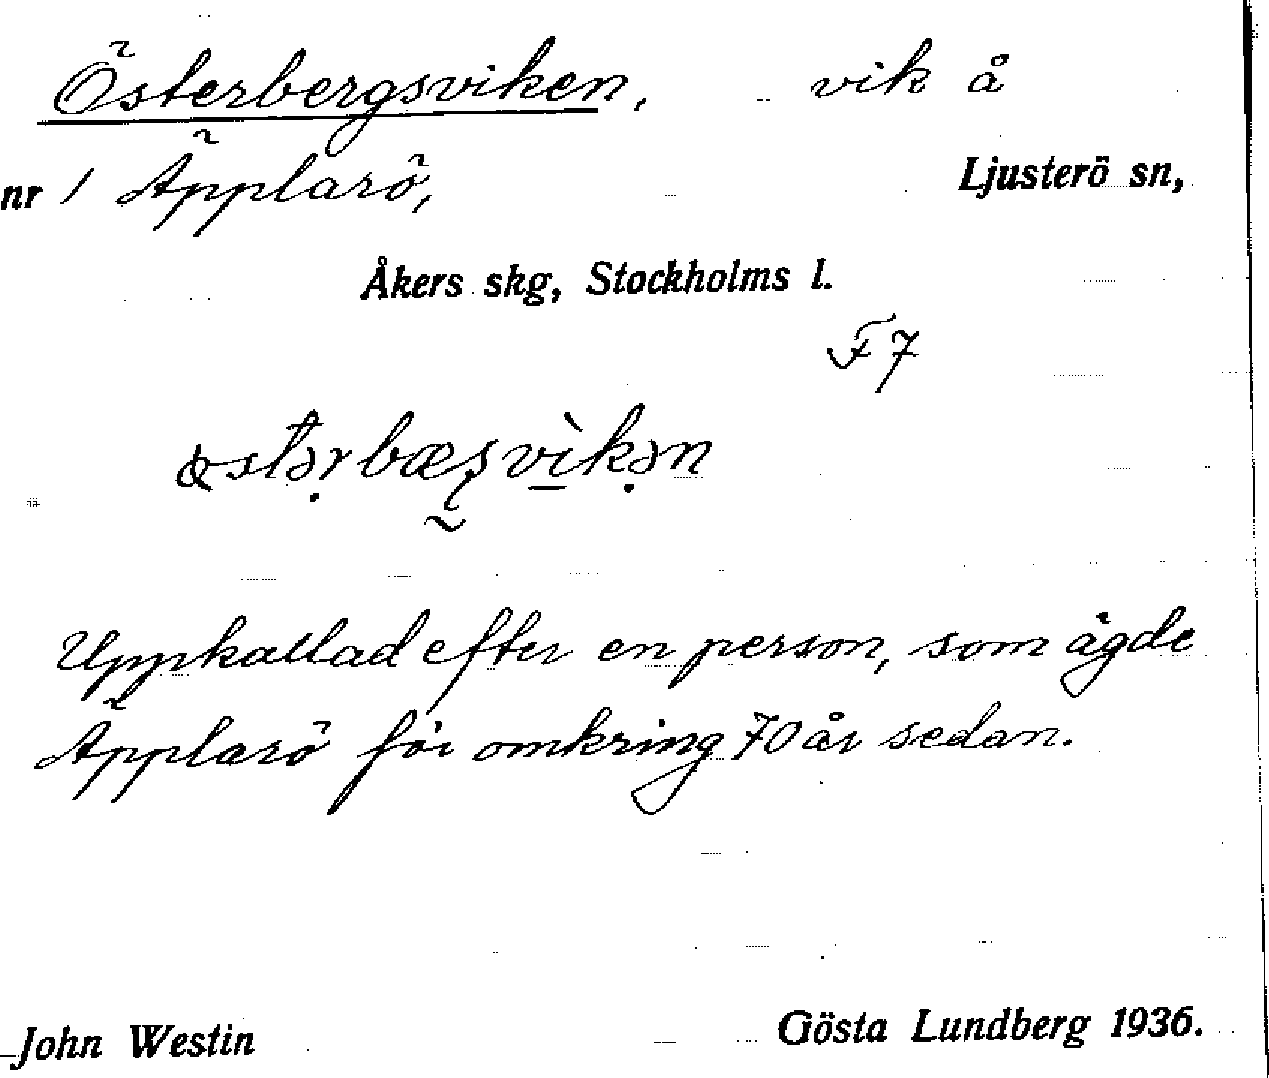 Österbergsviken, vik å
nr 1 Äpplarö, Ljusterö sn,
Åkers skg, Stockholms l.
F 7
Uppkallad efter en person, som ägde
Äpplarö för omkring 70 år sedan.
John Westin Gösta Lundberg 1936.